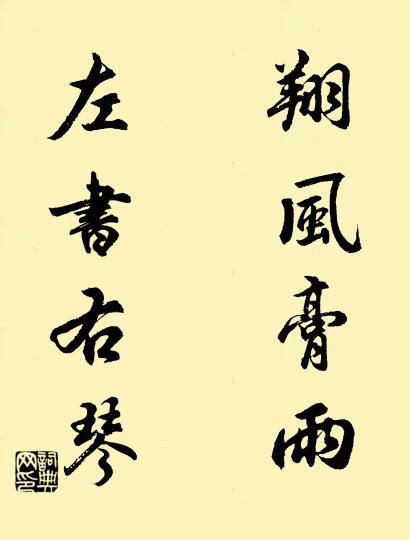 翔風膏雨
左書右琴
詞典網印